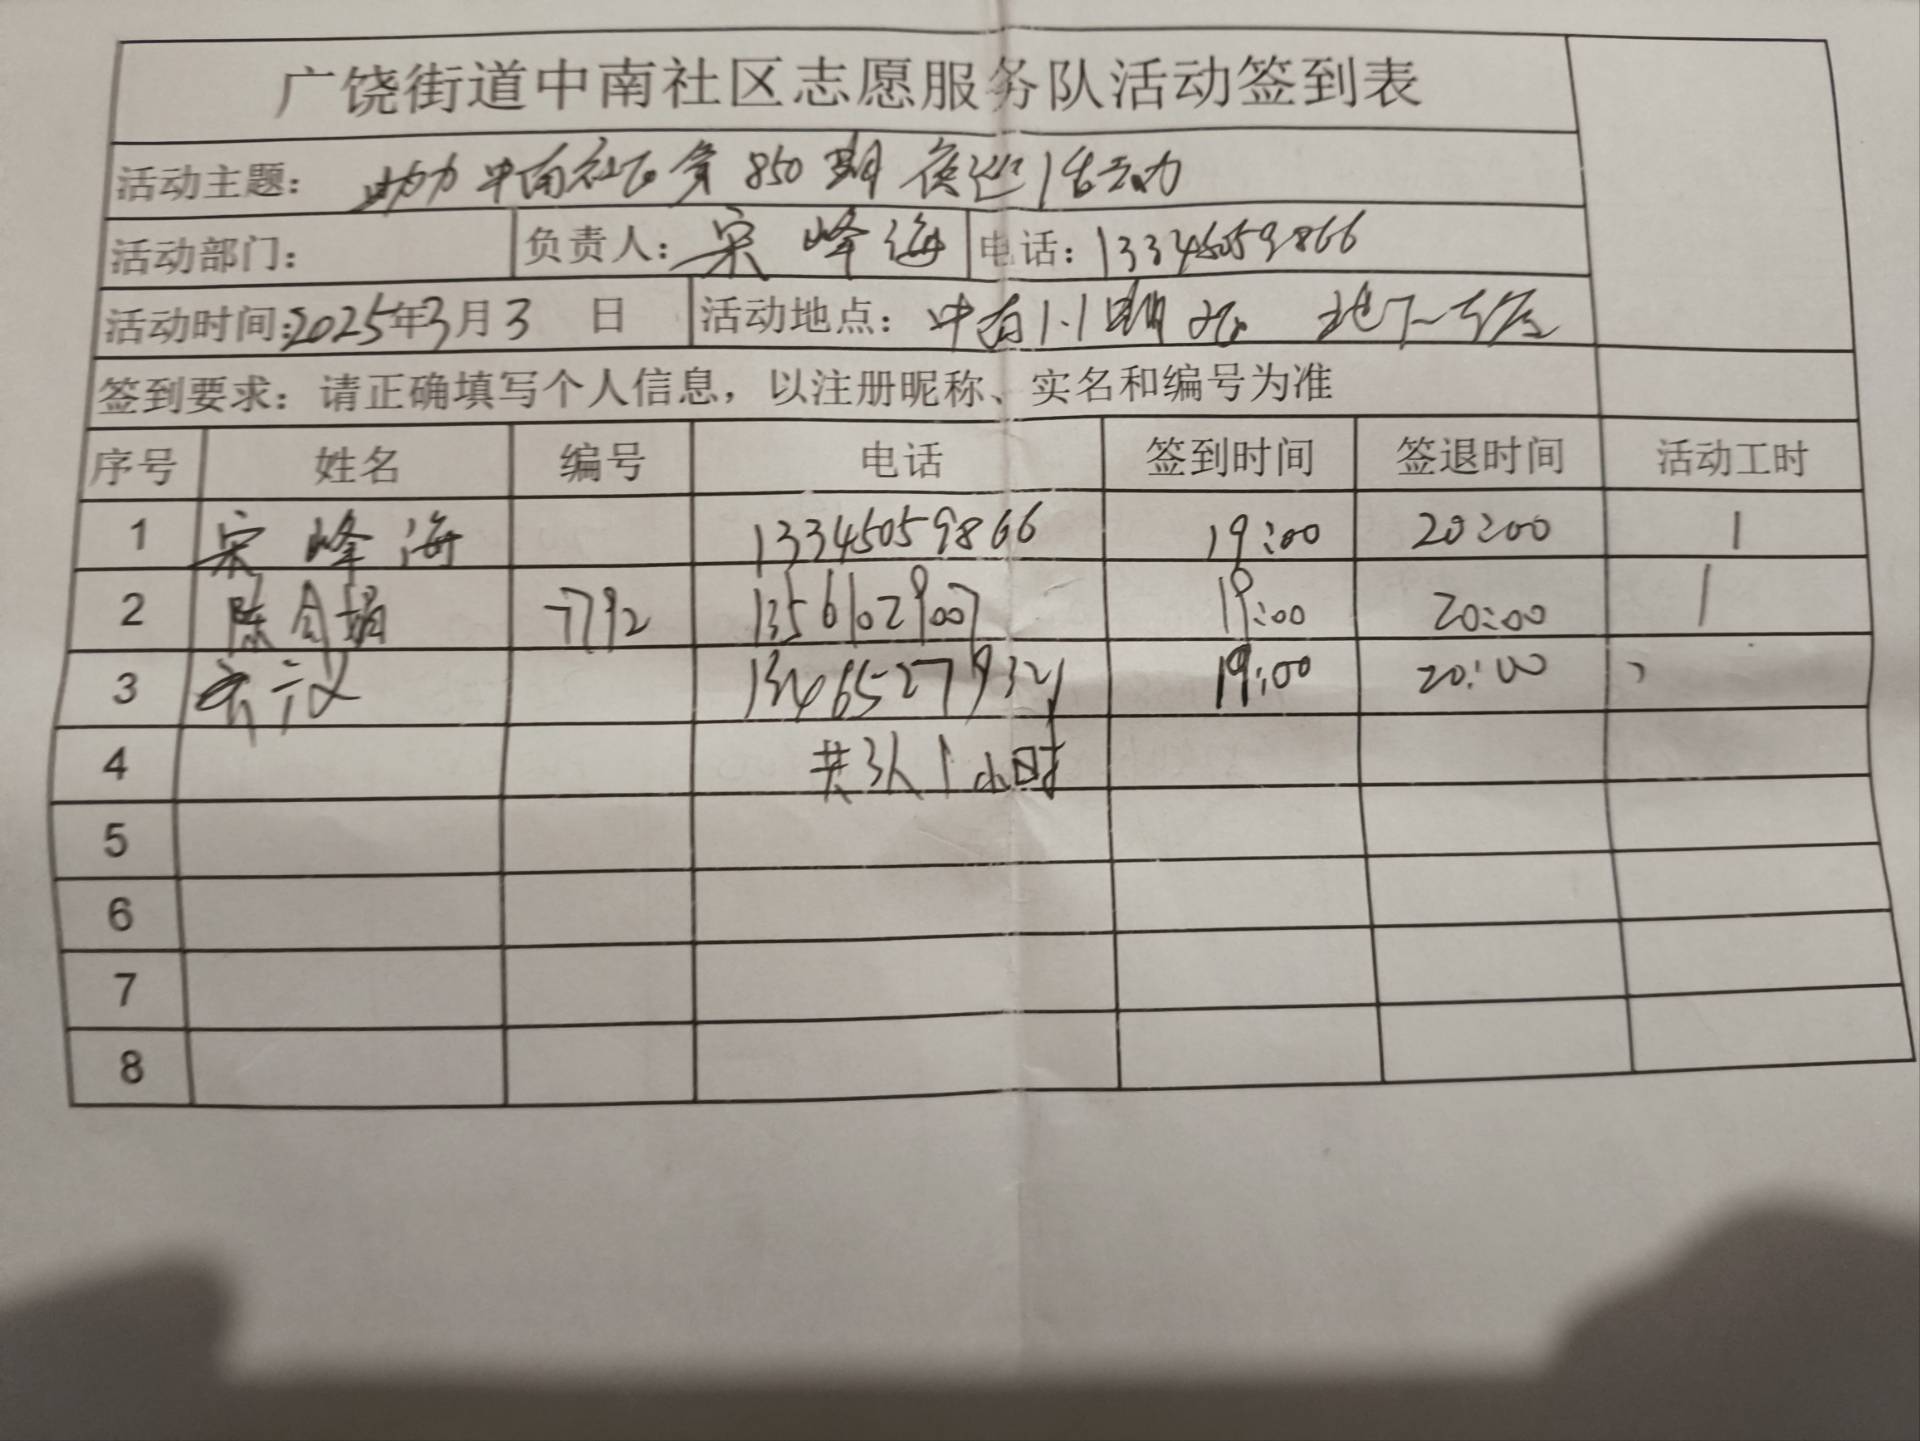 广饶街道中南社区志愿服务队活动签到表
活动主题: 助力中南社区第850期夜巡活动
活动部门: 负责人: 宋峰海 电话: 13345059866
活动时间: 2025年3月3日 活动地点: 中南1.1期 地下
签到要求: 请正确填写个人信息，以注册昵称、实名和编号为准
序号 姓名 编号 电话 签到时间 签退时间 活动工时
1 宋峰海 13345059866 19:00 20:00 1
2 陈 7792 13561029007 19:00 20:00 1
3 19:00 20:00
4 共3人1小时
5
6
7
8